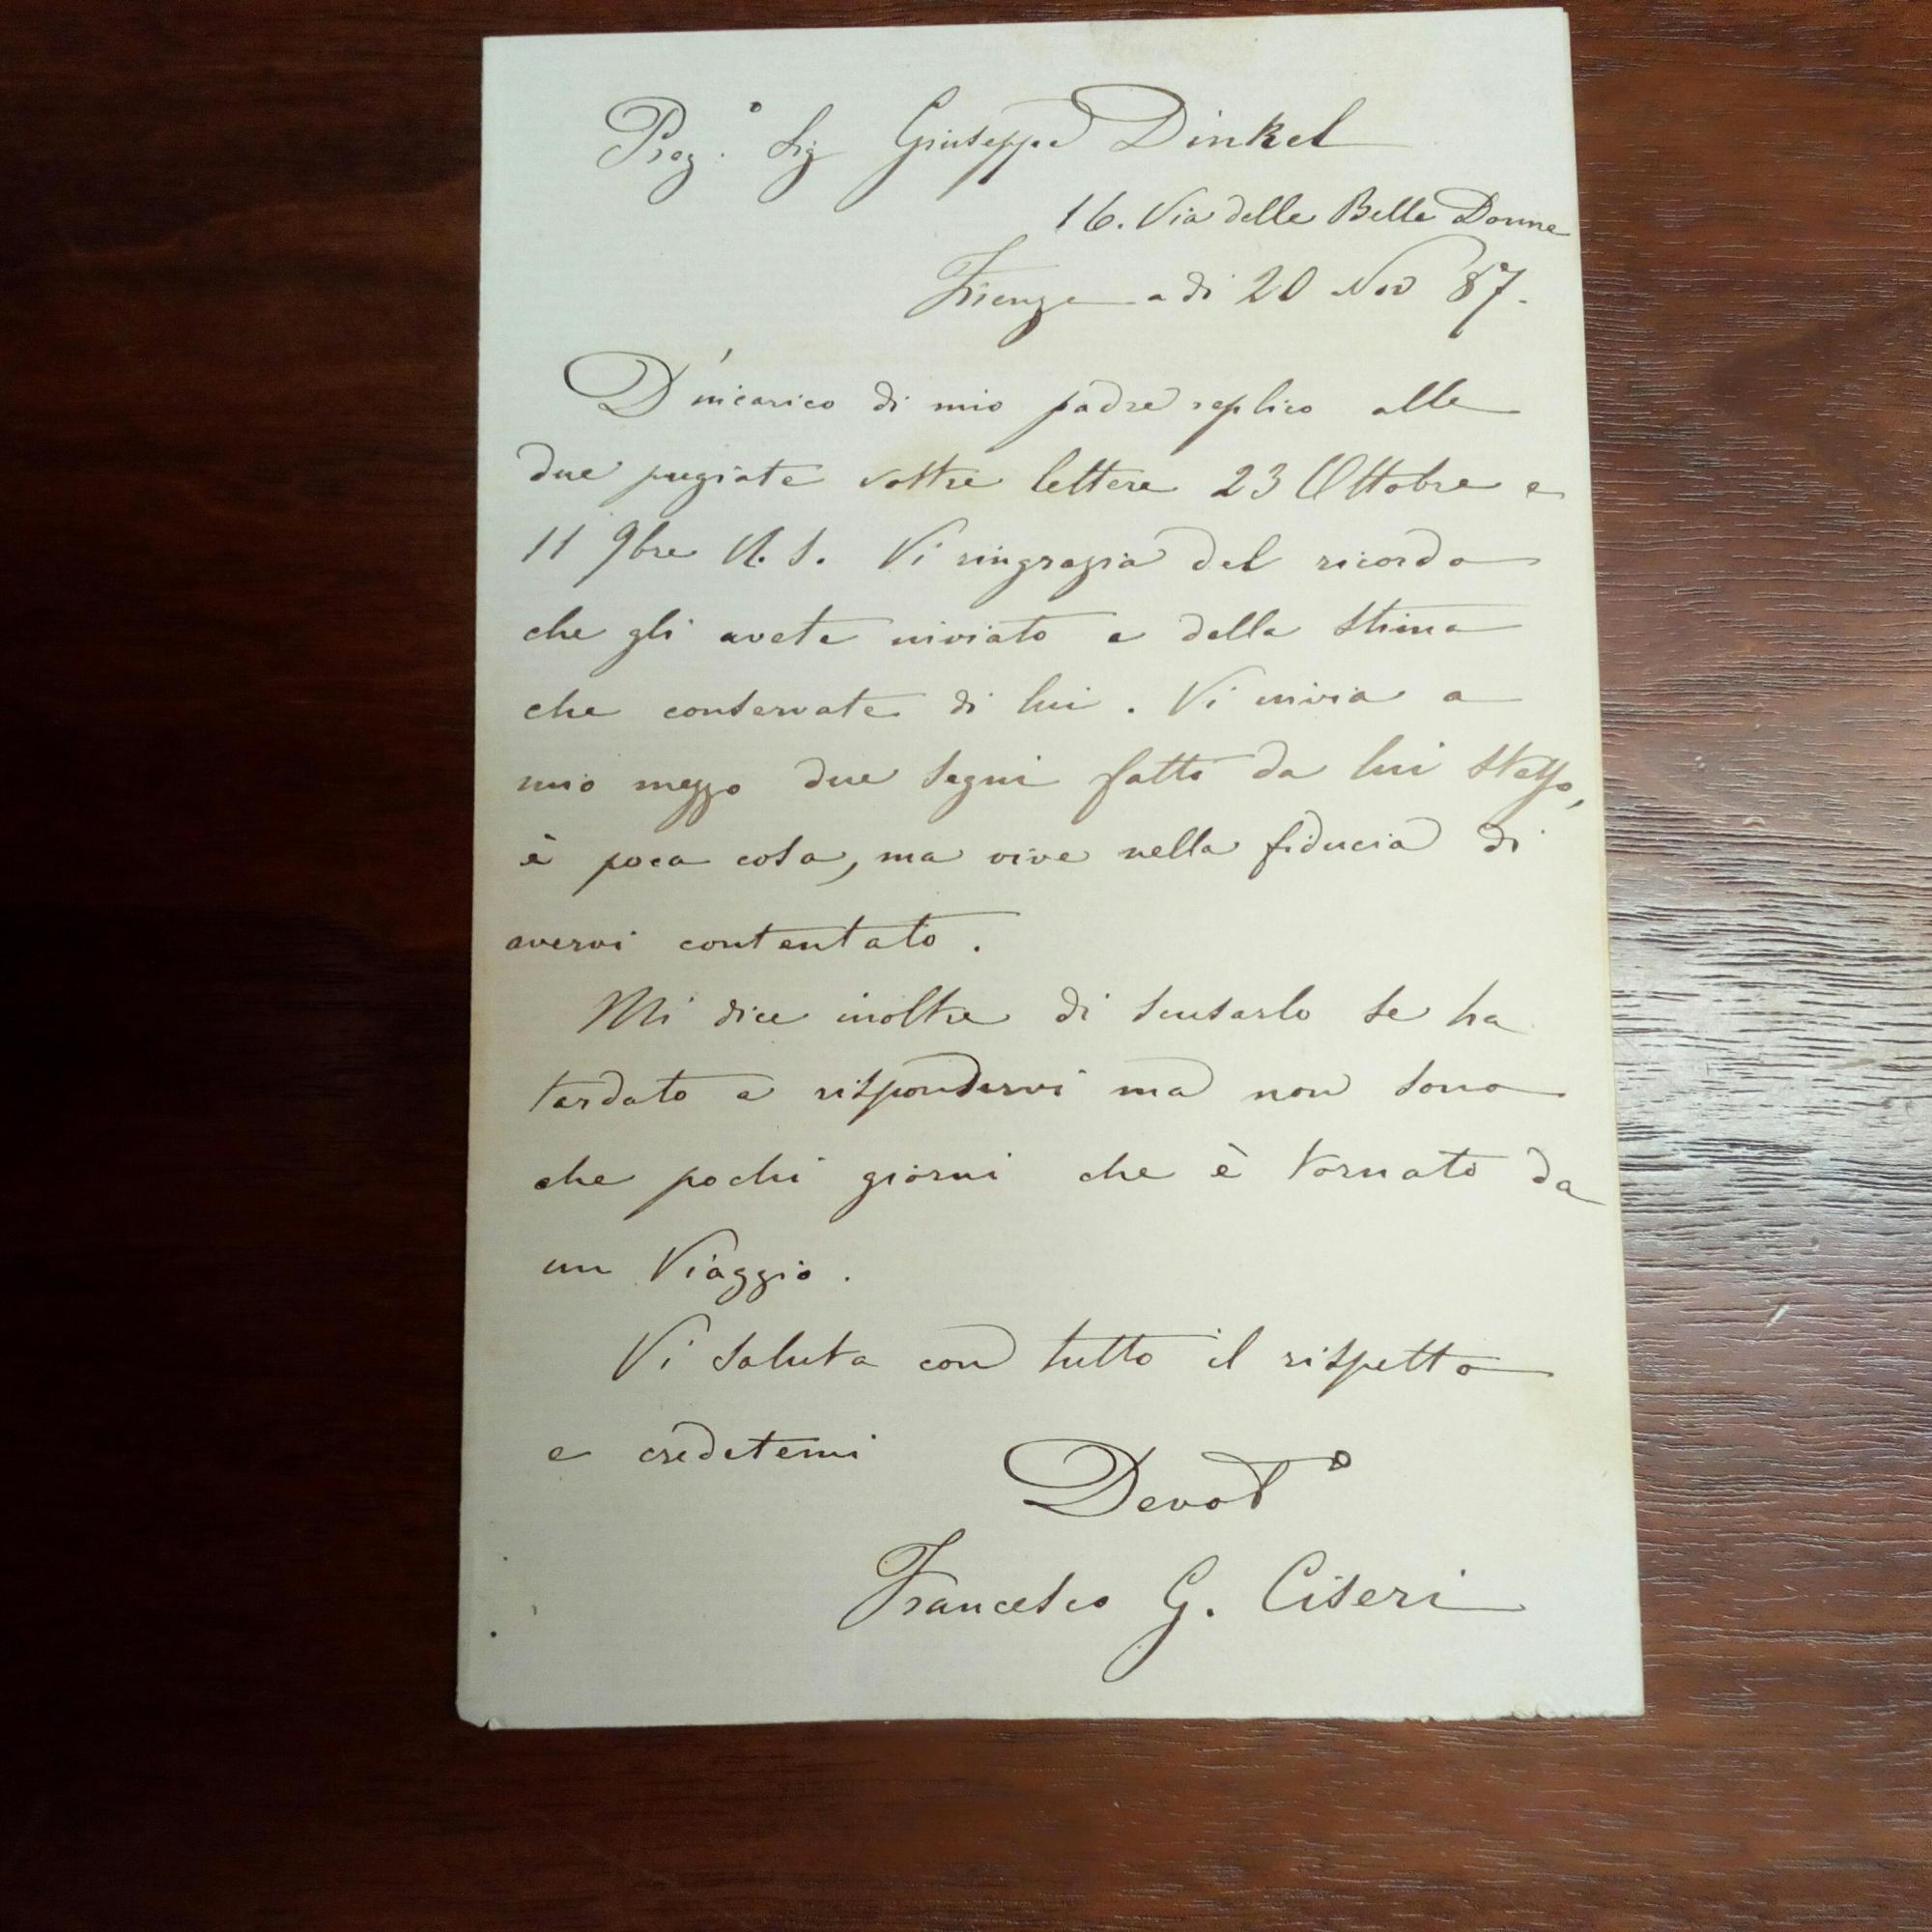 Preg.º Sig Giuseppe Dinkel
16. Via delle Belle Donne
Firenze a di 20 Nov 87.
D'incarico di mio padre replico alle
due pregiate vostre lettere 23 Ottobre e
11 9bre U.S. Vi ringrazia del ricordo
che gli avete inviato e della stima
che conservate di lui. Vi invia a
mio mezzo due segni fatti da lui stesso,
è poca cosa, ma vive nella fiducia di
avervi contentato.
Mi dice inoltre di scusarlo se ha
tardato a rispondervi ma non sono
che pochi giorni che è tornato da
un Viaggio.
Vi saluta con tutto il rispetto
e credetemi
Devotº
Francesco G. Ciseri